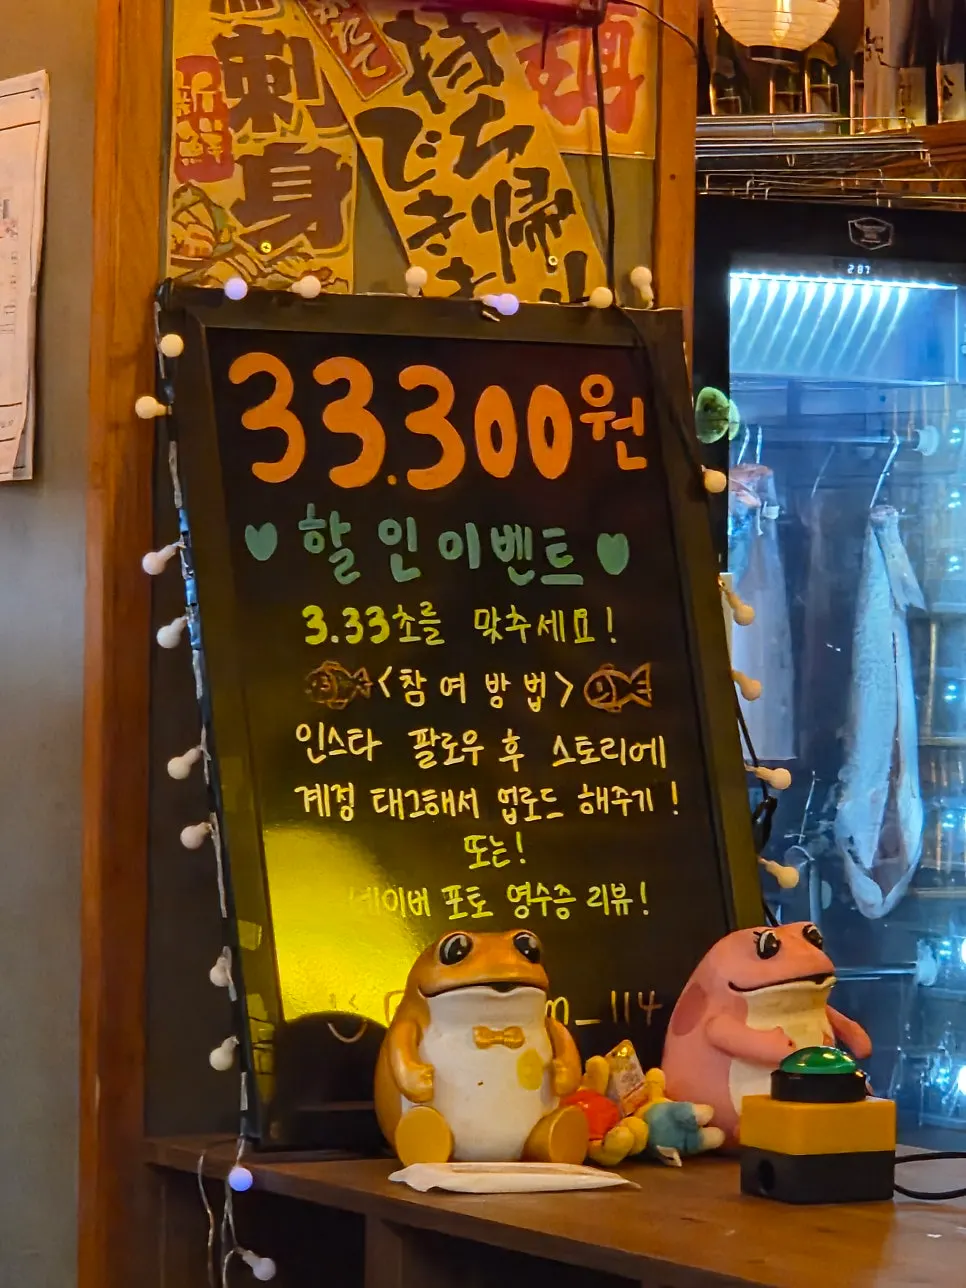 刺身
新鮮
持ち帰
できま
33.300원
할인이벤트
3.33초를 맞추세요!
<참여방법>
인스타 팔로우 후 스토리에
계정 태그해서 업로드 해주기!
또는!
네이버 포토 영수증 리뷰!
m_114
287